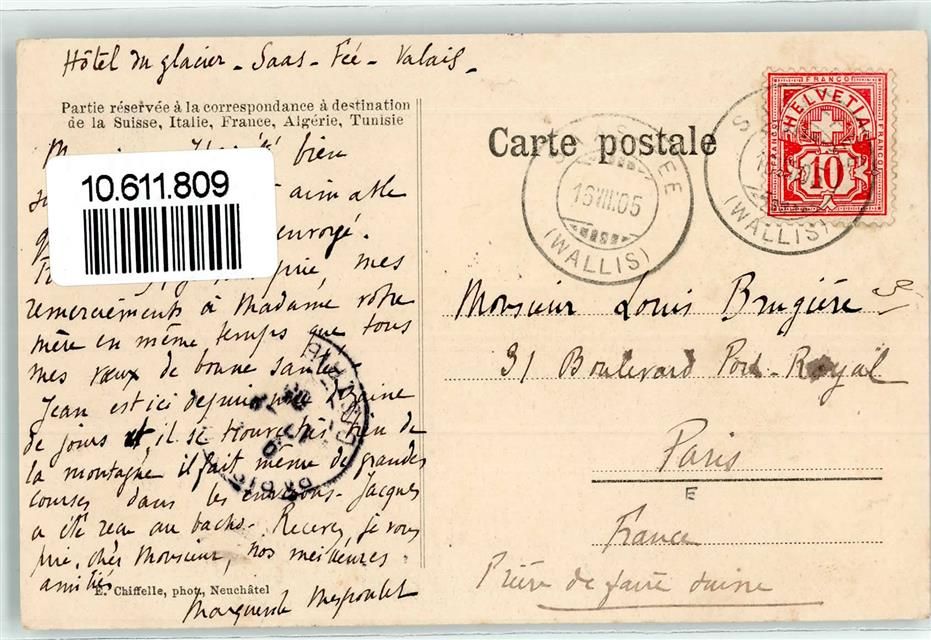 Hôtel du glacier - Saas-Fée - Valais -
Partie réservée à la correspondance à destination
de la Suisse, Italie, France, Algérie, Tunisie
Carte postale
bien
aimable
envoyé.
10.611.809
mes
remerciements à Madame votre
mère en même temps que tous
mes vœux de bonne santé.
Jean est ici depuis une
de jours et il se trouve très bien de
la montagne il fait même de grandes
courses dans les environs. Jacques
a été reçu au bacho. Recevez, je vous
prie, cher Monsieur, nos meilleures
amitiés
Marguerite
E. Chiffelle, phot., Neuchâtel
SAAS-FEE
16.VIII.05
(WALLIS)
FRANCO
HELVETIA
10
(WALLIS)
Monsieur Louis Brugière
31 Boulevard Port-Royal
Paris
E
France
Prière de faire suivre
PARIS